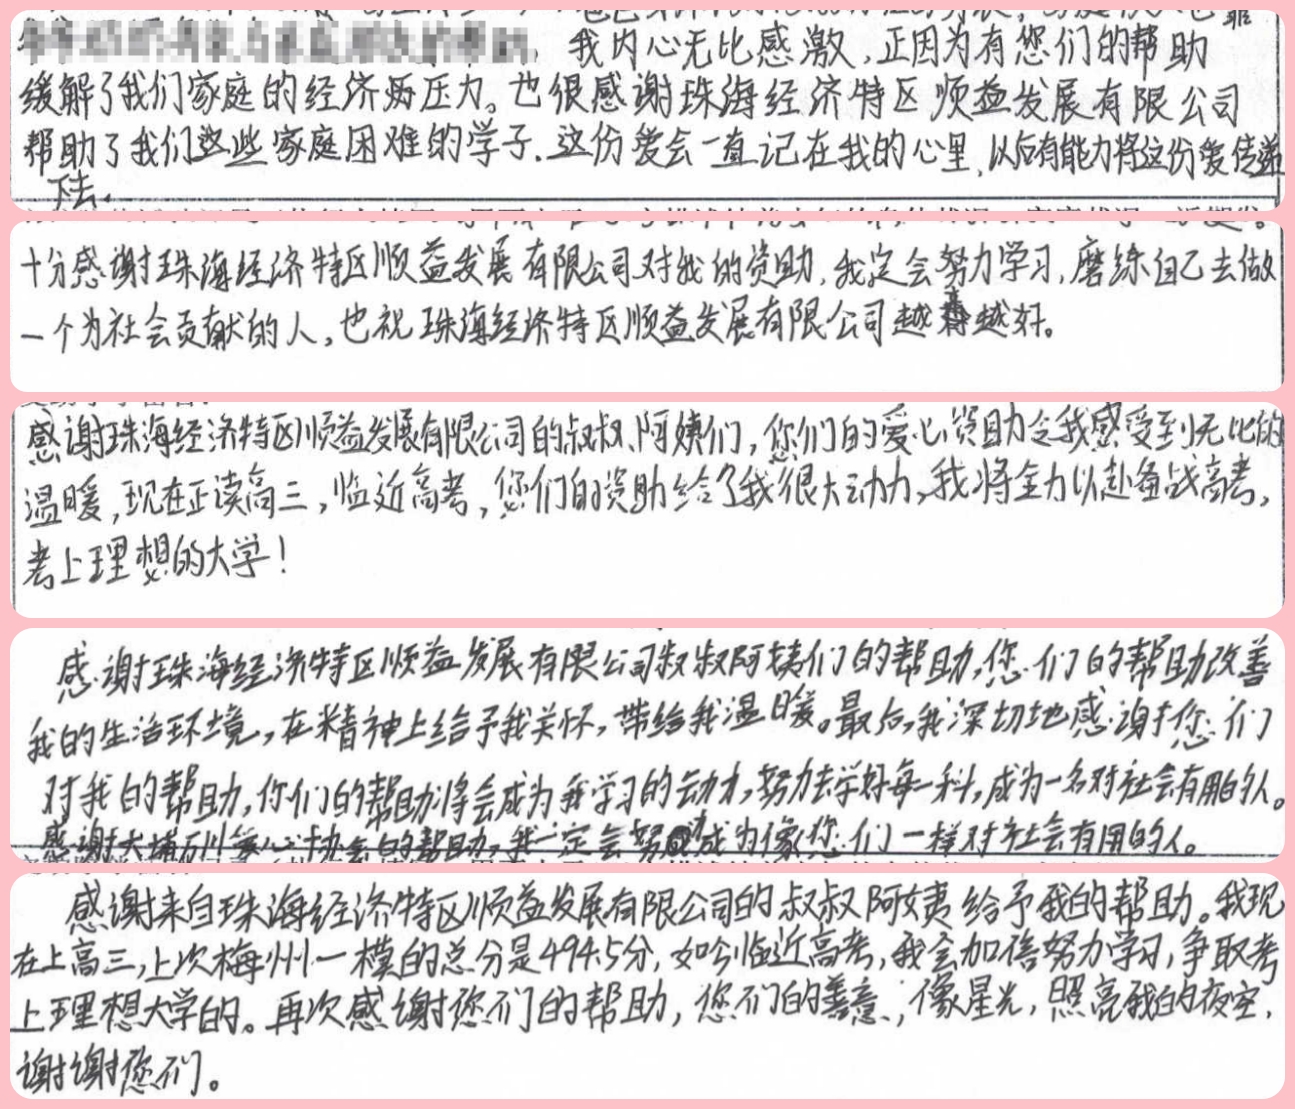 我内心无比感激,正因为有您们的帮助
缓解了我们家庭的经济压力。也很感谢珠海经济特区顺益发展有限公司
帮助了我们这些家庭困难的学子.这份爱会一直记在我的心里,以后有能力将这份爱传递
下去.
十分感谢珠海经济特区顺益发展有限公司对我的资助,我定会努力学习,磨练自己去做
一个为社会贡献的人,也祝珠海经济特区顺益发展有限公司越来越好。
感谢珠海经济特区顺益发展有限公司的叔叔、阿姨们,您们的爱心资助令我感受到无比的
温暖,现在正读高三,临近高考,您们的资助给了我很大动力,我将全力以赴备战高考,
考上理想的大学!
感谢珠海经济特区顺益发展有限公司叔叔阿姨们的帮助,您们的帮助改善
我的生活环境,在精神上给予我关怀,带给我温暖。最后,我深切地感谢您们
对我的帮助,你们的帮助将会成为我学习的动力,努力去学好每一科,成为一名对社会有用的人。
感谢大埔万川爱心协会的帮助,我一定会努力成为像您们一样对社会有用的人。
感谢来自珠海经济特区顺益发展有限公司的叔叔阿姨给予我的帮助。我现
在上高三,上次梅州一模的总分是494.5分,如今临近高考,我会加倍努力学习,争取考
上理想大学的。再次感谢您们的帮助,您们的善意,像星光,照亮我的夜空,
谢谢您们。